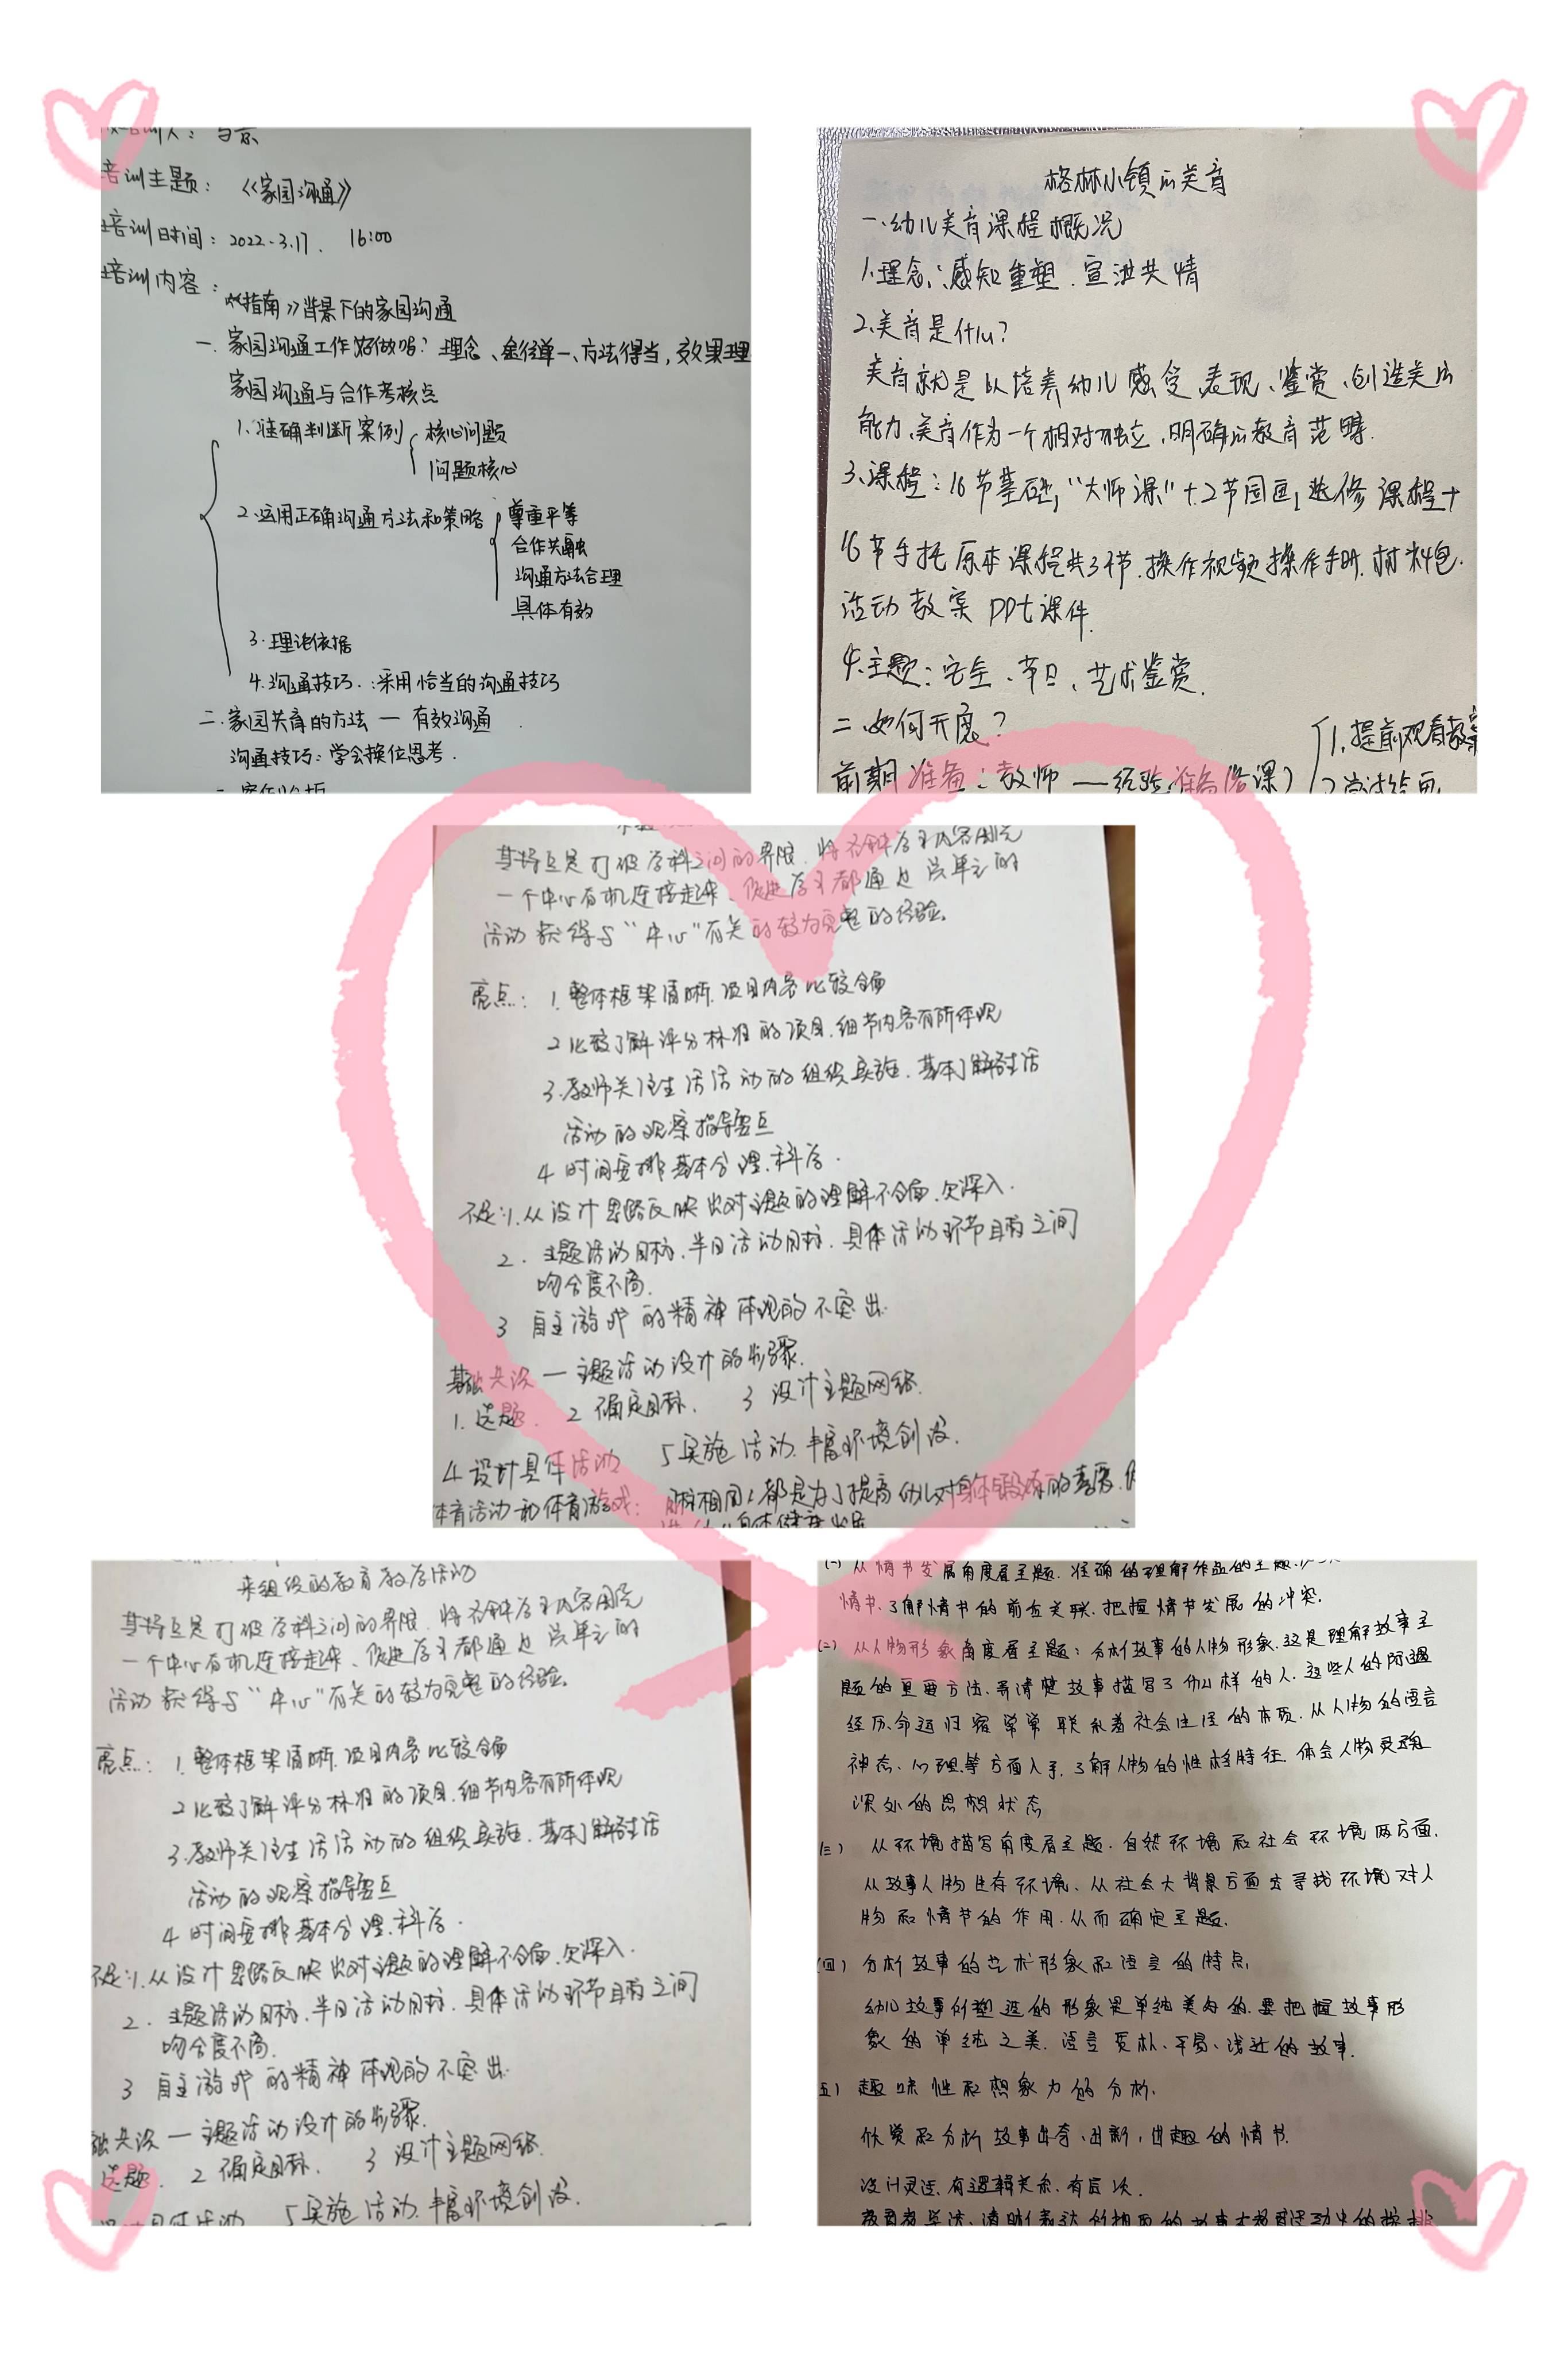 培训主题：《家园沟通》
培训时间：2022.3.17. 16:00
培训内容：
《指南》背景下的家园沟通
一.家园沟通工作好做吗？理念、途径单一、方法得当，效果理
家园沟通与合作考核点
1.准确判断案例 核心问题
问题核心
2.运用正确沟通方法和策略 尊重平等
合作共融
沟通方法合理
具体有效
3.理论依据
4.沟通技巧：采用恰当的沟通技巧
二.家园共育的方法 — 有效沟通
沟通技巧：学会换位思考.
格林小镇的美育
一.幼儿美育课程概况
1.理念：感知重塑.宣泄共情
2.美育是什么？
美育就是以培养幼儿感受、表现、鉴赏、创造美的
能力、美育作为一个相对独立，明确的教育范畴.
3.课程：16节基础，“大师课”+2节国画，选修课程+
16节手托原本课程共34节.操作视频操作手册.材料包.
活动教案 PPt课件.
4.主题：安全、节日、艺术鉴赏.
二、如何开展？
前期准备：教师 —经验准备(备课) 1.提前观看教案
其特点是打破学科之间的界限.将各种学习内容围绕
一个中心有机连接起来、促进学习都通过 的
活动获得与“中心”有关的较为完整的经验.
亮点：1.整体框架清晰.项目内容比较全面
2比较了解评分标准的项目.细节内容有所体现
3.教师关注生活活动的组织实施.基本了解生活
活动的观察指导要点
4时间安排基本合理.科学.
不足：1.从设计思路反映出对主题的理解不全面.欠深入.
2.主题活动目标.半日活动目标.具体活动环节目标之间
吻合度不高.
3 自主游戏的精神体现的不突出.
基础共识 — 主题活动设计的步骤.
1.选题. 2确定目标. 3设计主题网络.
4设计具体活动 5实施活动.丰富环境创设.
体育活动和体育游戏：目标相同：都是为了提高幼儿对身体锻炼的素质.
来组织的教育教学活动
其特点是打破学科之间的界限.将各种学习内容围绕
一个中心有机连接起来、促进学习都通过 的
活动获得与“中心”有关的较为完整的经验.
亮点：1.整体框架清晰.项目内容比较全面
2比较了解评分标准的项目.细节内容有所体现
3.教师关注生活活动的组织实施.基本了解生活
活动的观察指导要点
4时间安排基本合理.科学.
不足：1.从设计思路反映出对主题的理解不全面.欠深入.
2.主题活动目标.半日活动目标.具体活动环节目标之间
吻合度不高.
3 自主游戏的精神体现的不突出.
础共识 — 主题活动设计的步骤.
选题. 2确定目标. 3设计主题网络.
5实施活动.丰富环境创设.
(一)从情节发展角度看主题.准确的理解作品的主题.
情节.了解情节的前后关联.把握情节发展的冲突.
(二)从人物形象角度看主题：分析故事的人物形象.这是理解故事主
题的重要方法.弄清楚故事描写了什么样的人.这些人的所遇
经历.命运归宿常常联系着社会生活的本质.从人物的语言
神态、心理等方面入手.了解人物的性格特征.体会人物灵魂
深处的思想状态
(三)从环境描写角度看主题.自然环境和社会环境两方面.
从故事人物生存环境、从社会大背景方面去寻找环境对人
物和情节的作用.从而确定主题.
(四)分析故事的艺术形象和语言的特点.
幼儿故事所塑造的形象是单纯美的.要把握故事形
象的单纯之美.语言质朴、平易、浅近的故事.
五)趣味性和想象力的分析.
欣赏和分析故事出奇、出新，出趣的情节.
设计灵活.有逻辑关系.有层次.